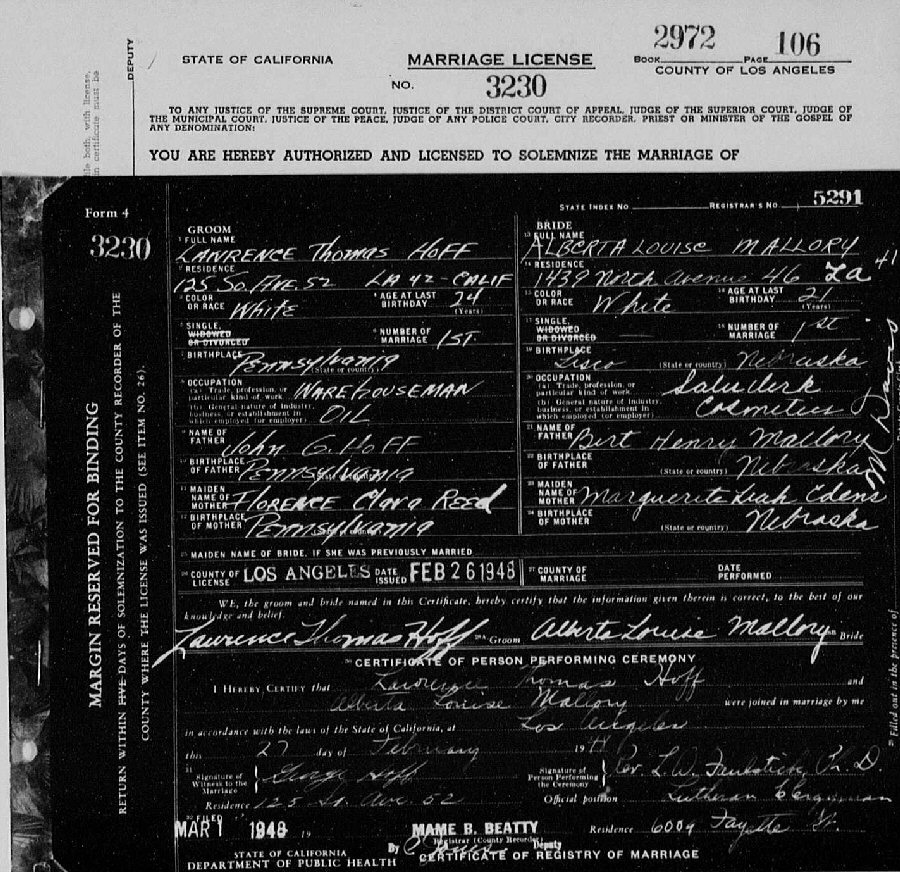 2972 106
STATE OF CALIFORNIA MARRIAGE LICENSE BOOK PAGE
NO. 3230 COUNTY OF LOS ANGELES
DEPUTY
TO ANY JUSTICE OF THE SUPREME COURT, JUSTICE OF THE DISTRICT COURT OF APPEAL, JUDGE OF THE SUPERIOR COURT, JUDGE OF
THE MUNICIPAL COURT, JUSTICE OF THE PEACE, JUDGE OF ANY POLICE COURT, CITY RECORDER, PRIEST OR MINISTER OF THE GOSPEL OF
ANY DENOMINATION:
YOU ARE HEREBY AUTHORIZED AND LICENSED TO SOLEMNIZE THE MARRIAGE OF
Form 4
3230
STATE INDEX NO. REGISTRAR'S NO. 5291
MARGIN RESERVED FOR BINDING
RETURN WITHIN FIVE DAYS OF SOLEMNIZATION TO THE COUNTY RECORDER OF THE
COUNTY WHERE THE LICENSE WAS ISSUED (SEE ITEM NO. 26).
GROOM
FULL NAME
LAWRENCE Thomas HOFF
RESIDENCE
125 So. AVE. 52 LA 42 - CALIF
COLOR OR RACE White AGE AT LAST BIRTHDAY 24 (Years)
SINGLE, WIDOWED OR DIVORCED NUMBER OF MARRIAGE 1ST
BIRTHPLACE Pennsylvania
(State or country)
OCCUPATION
(a) Trade, profession, or particular kind of work WAREHOUSEMAN
(b) General nature of industry, business, or establishment in which employed (or employer)
NAME OF FATHER John G. HOFF
BIRTHPLACE OF FATHER Pennsylvania
MAIDEN NAME OF MOTHER FLORENCE Clara REED
BIRTHPLACE OF MOTHER Pennsylvania
BRIDE
FULL NAME
ALBERTA LOUISE MALLORY
RESIDENCE
1439 North Avenue 46 La 41
COLOR OR RACE White AGE AT LAST BIRTHDAY 21 (Years)
SINGLE, WIDOWED OR DIVORCED NUMBER OF MARRIAGE 1st
BIRTHPLACE Lisco (State or country) Nebraska
OCCUPATION
(a) Trade, profession, or particular kind of work Salesclerk
(b) General nature of industry, business, or establishment in which employed (or employer) Cosmetics
NAME OF FATHER Bert Henry Mallory
BIRTHPLACE OF FATHER (State or country) Nebraska
MAIDEN NAME OF MOTHER Marguerite Leah Edens
BIRTHPLACE OF MOTHER (State or country) Nebraska
MAIDEN NAME OF BRIDE, IF SHE WAS PREVIOUSLY MARRIED
COUNTY OF LICENSE LOS ANGELES DATE ISSUED FEB 26 1948 COUNTY OF MARRIAGE DATE PERFORMED
WE, the groom and bride named in this Certificate, hereby certify that the information given therein is correct, to the best of our
knowledge and belief.
Lawrence Thomas Hoff Groom Alberta Louise Mallory Bride
CERTIFICATE OF PERSON PERFORMING CEREMONY
I HEREBY CERTIFY that Lawrence Thomas Hoff and
Alberta Louise Mallory were joined in marriage by me
in accordance with the laws of the State of California, at Los Angeles
this 27 day of February 19
Signature of Witness to the Marriage George Hoff Signature of Person Performing the Ceremony
Residence 125 So. Ave. 52 Official position Lutheran Clergyman
FILED
MAR 1 1948 19 MAME B. BEATTY Residence 6009 Fayette St.
Registrar (County Recorder)
By Deputy
STATE OF CALIFORNIA
DEPARTMENT OF PUBLIC HEALTH CERTIFICATE OF REGISTRY OF MARRIAGE
Filled out in the presence of